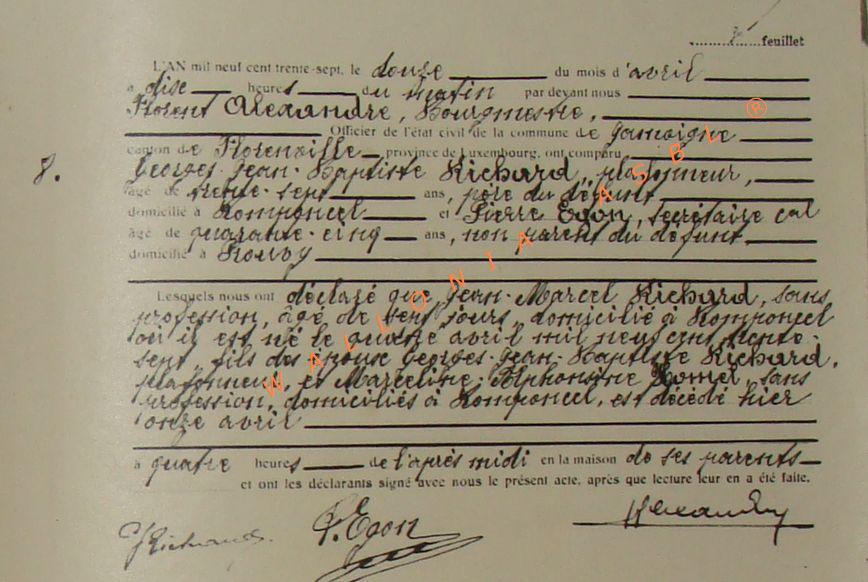 feuillet
L'AN mil neuf cent trente-sept, le douze du mois d'avril
à dise heures du matin par devant nous
Florent Alexandre, Bourgmestre,
Officier de l'état civil de la commune de Jamoigne
canton de Florenville, province de Luxembourg, ont comparu
8. Georges-Jean-Baptiste Richard, plafonneur,
âgé de trente-sept ans, père du défunt
domicilié à Romponcel et Pierre Egon, secrétaire cal
âgé de quarante-cinq ans, non parent du défunt
domicilié à Rouvy
Lesquels nous ont déclaré que Jean-Marcel Richard, sans
profession, âgé de sept jours, domicilié à Romponcel
où il est né le quatre avril mil neuf cent trente-
sept, fils des époux Georges-Jean-Baptiste Richard,
plafonneur, et Marceline-Alphonsine Hamel, sans
profession, domiciliés à Romponcel, est décédé hier
onze avril
à quatre heures de l'après midi en la maison de ses parents
et ont les déclarants signé avec nous le présent acte, après que lecture leur en a été faite.
GRichard. P.Egon Alexandre
WALLONIA ASBL ®